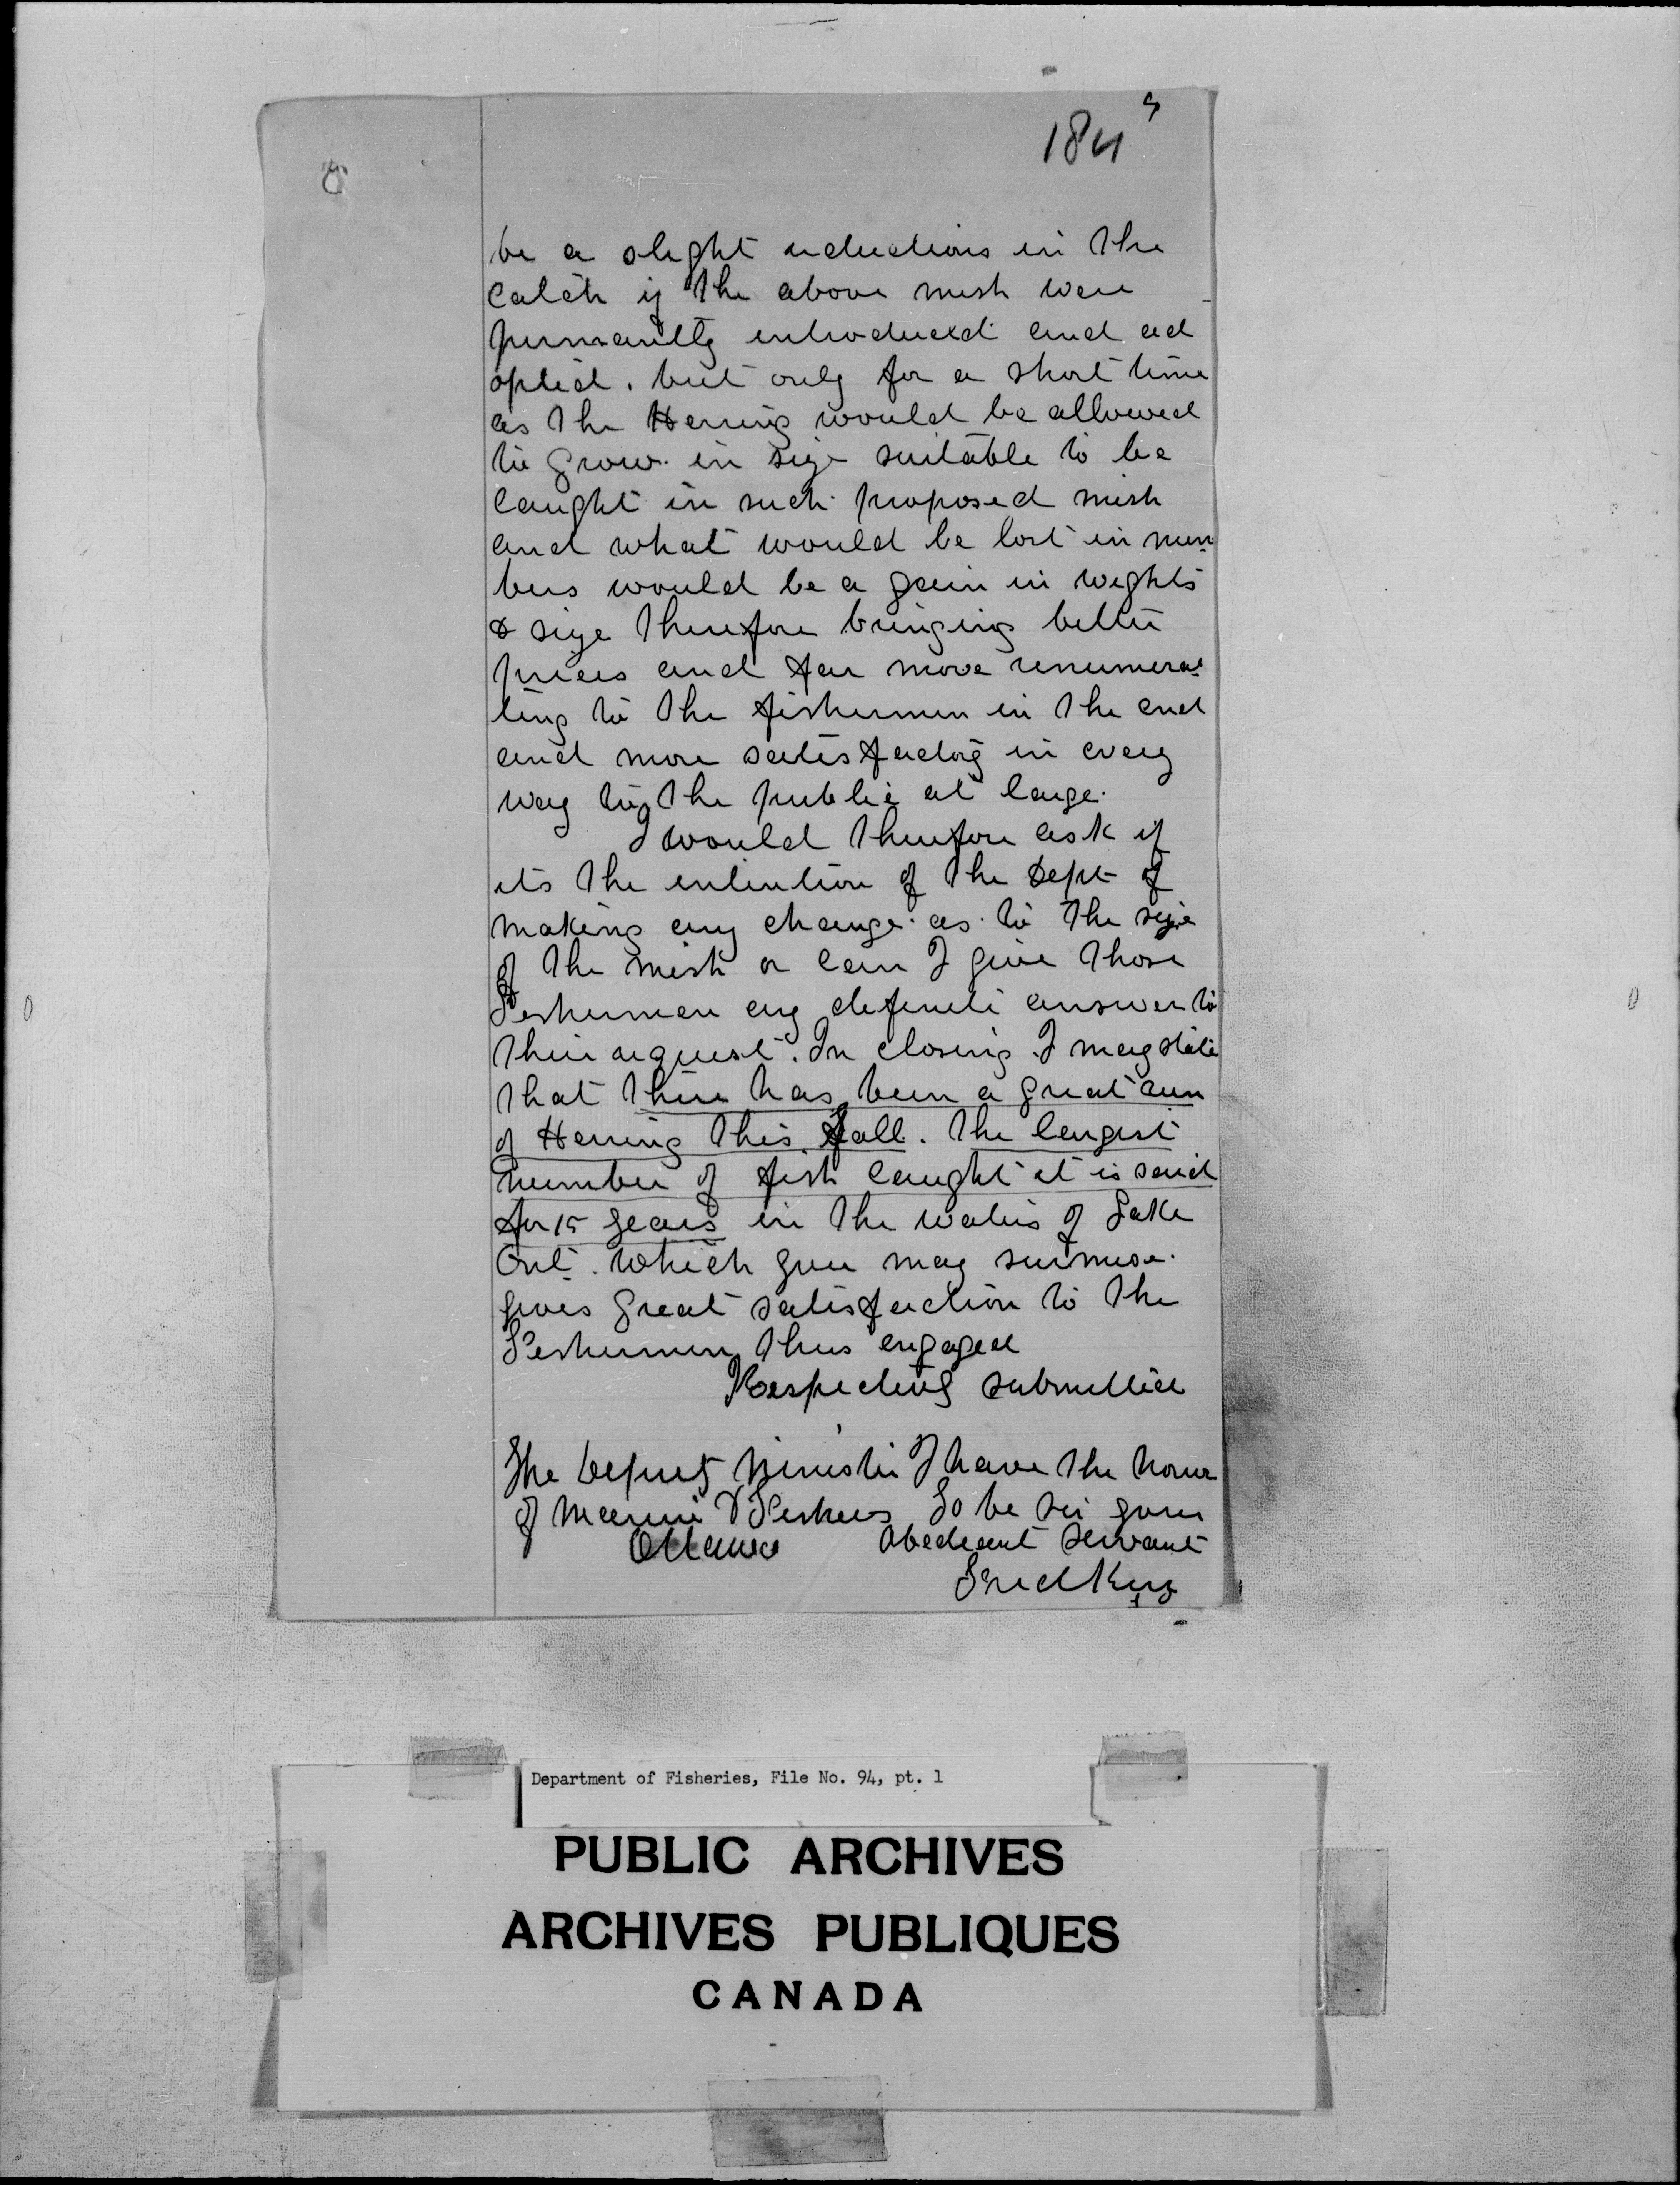 184
be a slight reductions in the
Catch if the above mesh were
permanntly introduced and ad
opted. but only for a short time
as the Herring would be allowed
to grow in size suitable to be
Caught in such proposed mesh
and what would be lost in num
bers would be a gain in wights
& size therefore bringing better
prices and far more renumera
ting to the fishermen in the end
and more satisfactory in every
way to the public at large.
I would therefore ask if
its the intention of the Dept of
making any change as to the size
of the mesh or can I give those
Fishermen any definite answer to
their request. In closing I may state
that there has been a great run
of Herring this fall. The largest
number of fish caught it is said
for 15 years in the waters of Lake
Ont. Which you may surmise
gives great satisfaction to the
Fishermen thus engaged
Respectively submitted
The Deputy Minister I have the honor
of Marine & Fisheries To be sir your
Ottawa Obedeant servant
Fred Kerr
Department of Fisheries, File No. 94, pt. 1
PUBLIC ARCHIVES
ARCHIVES PUBLIQUES
CANADA